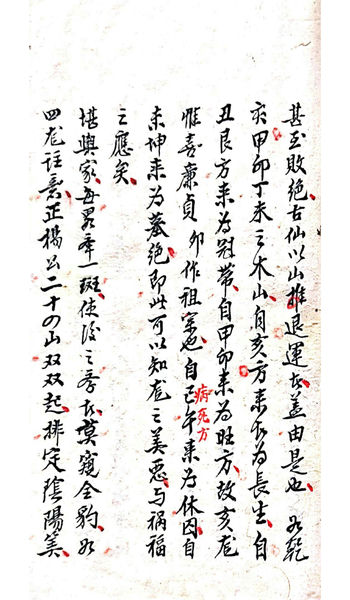 甚至敗絶古仙以山推退運者盖由是也如乾
亥甲卯丁未之木山自亥方来者为長生自
丑艮方来为冠帶自甲卯来为旺方故亥龙
惟喜廉貞卯作祖宗也自巳午来为休囚自
病死方
未坤来为墓绝即此可以知龙之美恶与祸福
之應矣
堪輿家每畧举一斑使後之学者莫窺全豹如
四龙註意正楊公二十四山双双起排定陰陽算